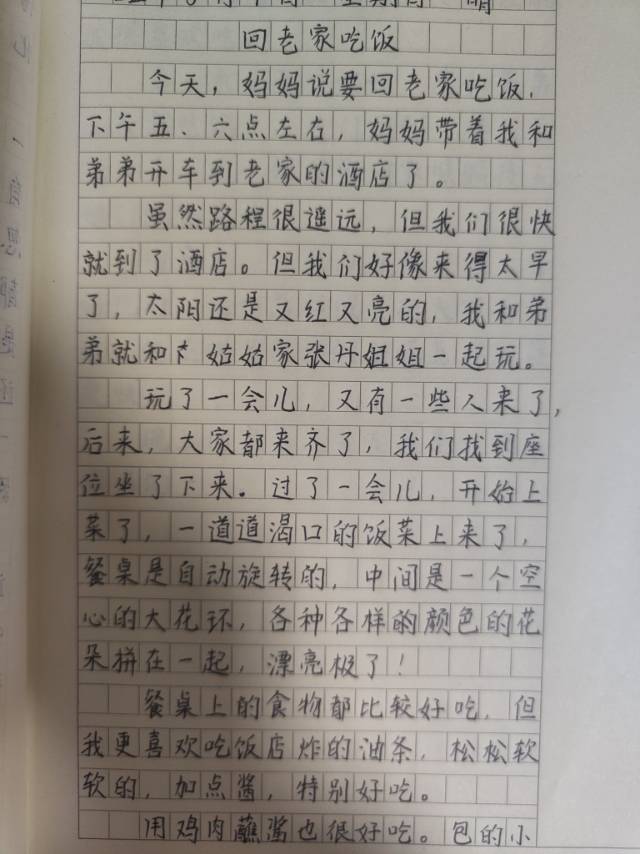 回老家吃饭
今天，妈妈说要回老家吃饭，
下午五、六点左右，妈妈带着我和
弟弟开车到老家的酒店了。
虽然路程很遥远，但我们很快
就到了酒店。但我们好像来得太早
了，太阳还是又红又亮的，我和弟
弟就和姑姑家张丹姐姐一起玩。
玩了一会儿，又有一些人来了，
后来，大家都来齐了，我们找到座
位坐了下来。过了一会儿，开始上
菜了，一道道渴口的饭菜上来了，
餐桌是自动旋转的，中间是一个空
心的大花环，各种各样的颜色的花
朵拼在一起，漂亮极了！
餐桌上的食物都比较好吃，但
我更喜欢吃饭店炸的油条，松松软
软的，加点酱，特别好吃。
用鸡肉蘸酱也很好吃。包的小